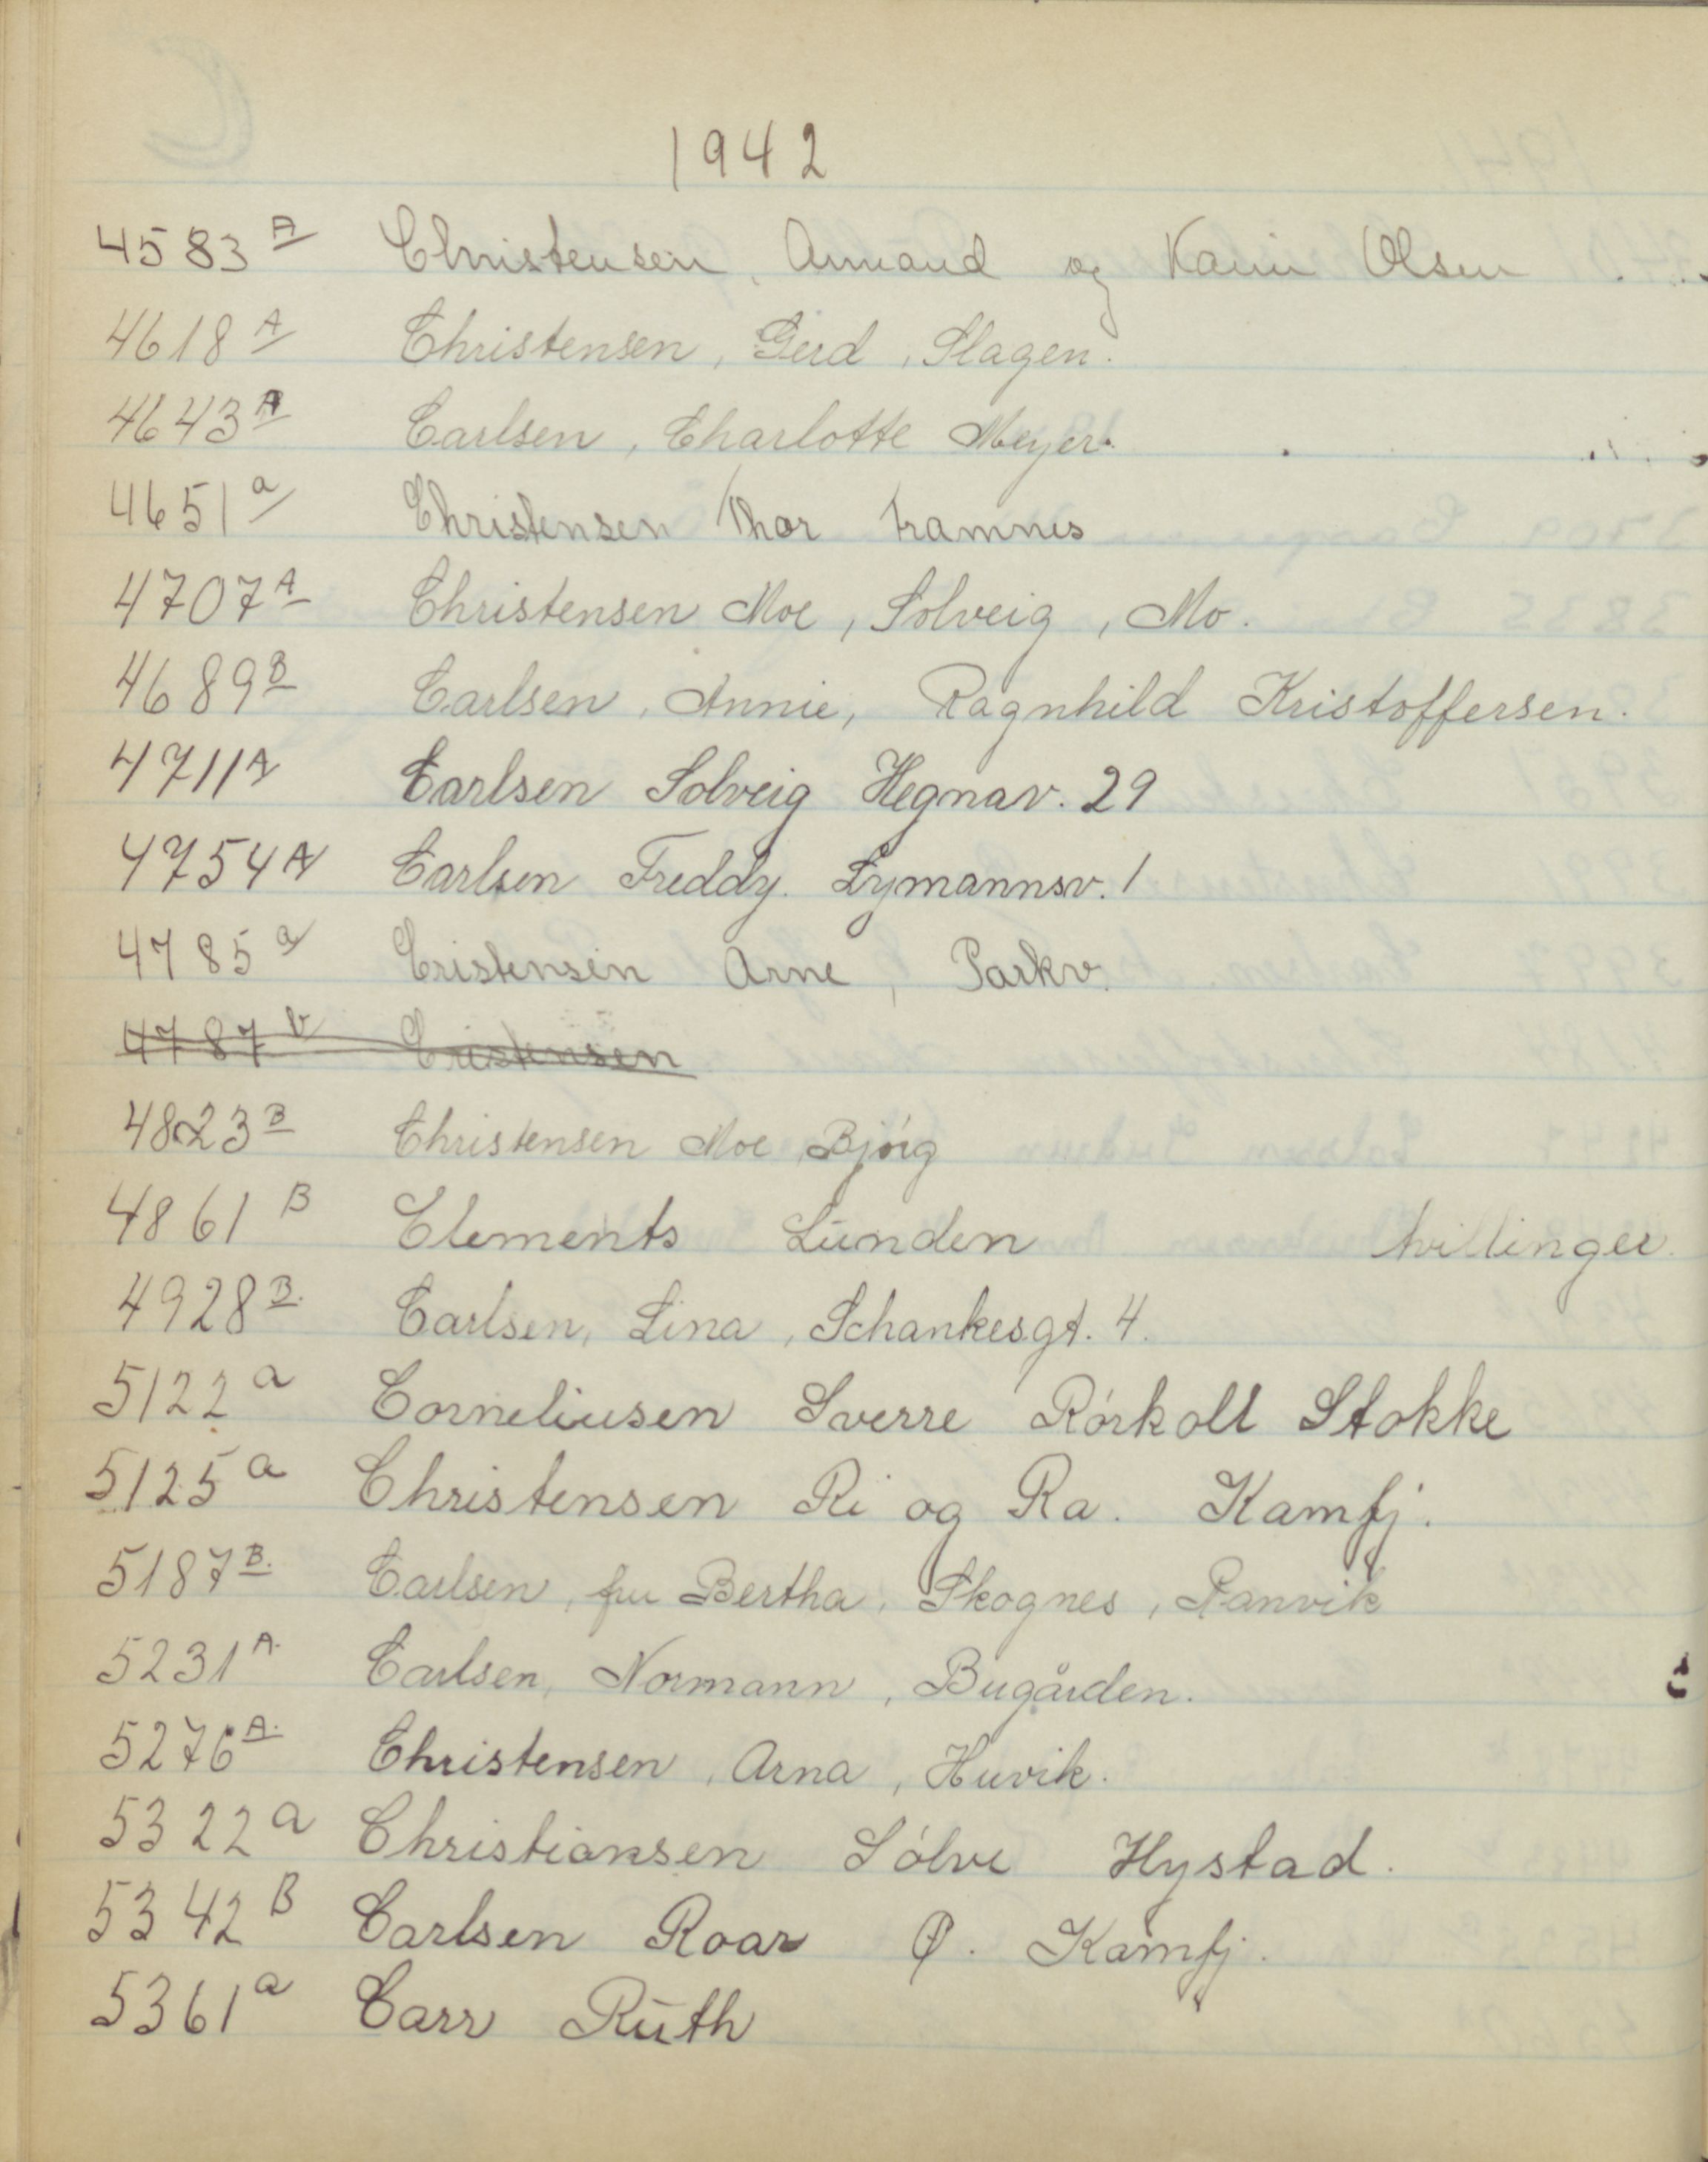 1942
4583 A Christensen, Armand og Karin Olsen
4618 A Christensen, Gerd, Slagen.
4643 A Carlsen, Charlotte Meyer.
4651 a Christensen Thor Framnes
4707 A Christensen Moe, Solveig, Mo.
4689 B Carlsen, Annie, Ragnhild Kristoffersen.
4711 A Carlsen Solveig Hegnav. 29
4754 A Carlsen Freddy. Lymannsv. 1
4785 a Cristensen Arne, Parkv.
4787 b Cristensen
4823 B Christensen Moe, Bjórg
4861 B Clements Lūnden tvillinger.
4928 B. Carlsen, Lina, Schankesgt. 4.
5122 a Corneliusen Sverre Rórkoll Stokke
5125 a Christensen Ri og Ra. Kamfj.
5187 B. Carlsen, fru Bertha, Skognes, Ranvik
5231 A. Carlsen, Normann, Bugården.
5276 A. Christensen, Arna, Huvik.
5322 a Christiansen Sólve Hystad.
5342 B Carlsen Roar Ø. Kamfj.
5361 a Carr Rūth